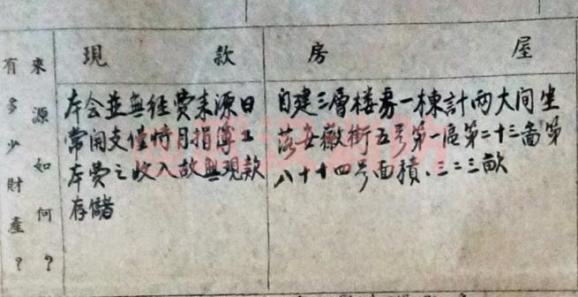 有多少財產？
來源如何？
現款
本会並無经費来源日
常開支僅恃月捐簿工
本費之收入故無現款
存儲
房屋
自建三層楼房一棟計两大间坐
落安徽街五号第一區第二十三啚第
八十十四号面積、三二三畝